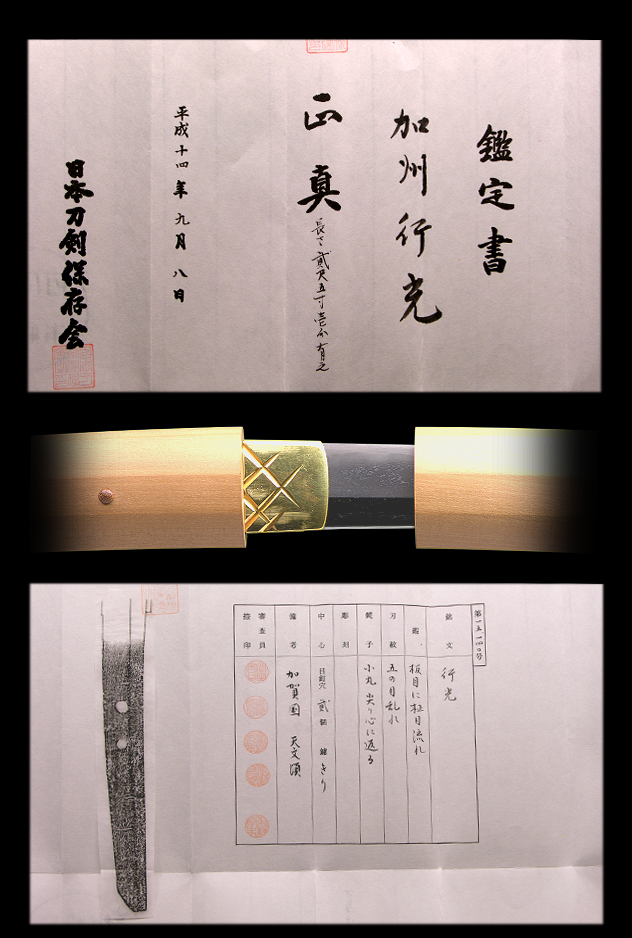 鑑定書
加州行光
正真
長さ貳尺五寸壱分有之
平成十四年九月八日
日本刀剣保存会
第一五一四〇号
銘文
行光
鑑
板目に柾目流れ
刃紋
五の目乱れ
鋩子
小丸尖り心に返る
彫刻
中心
目釘穴 貳個 鑢 きり
備考
加賀国 天文頃
審査員
証印